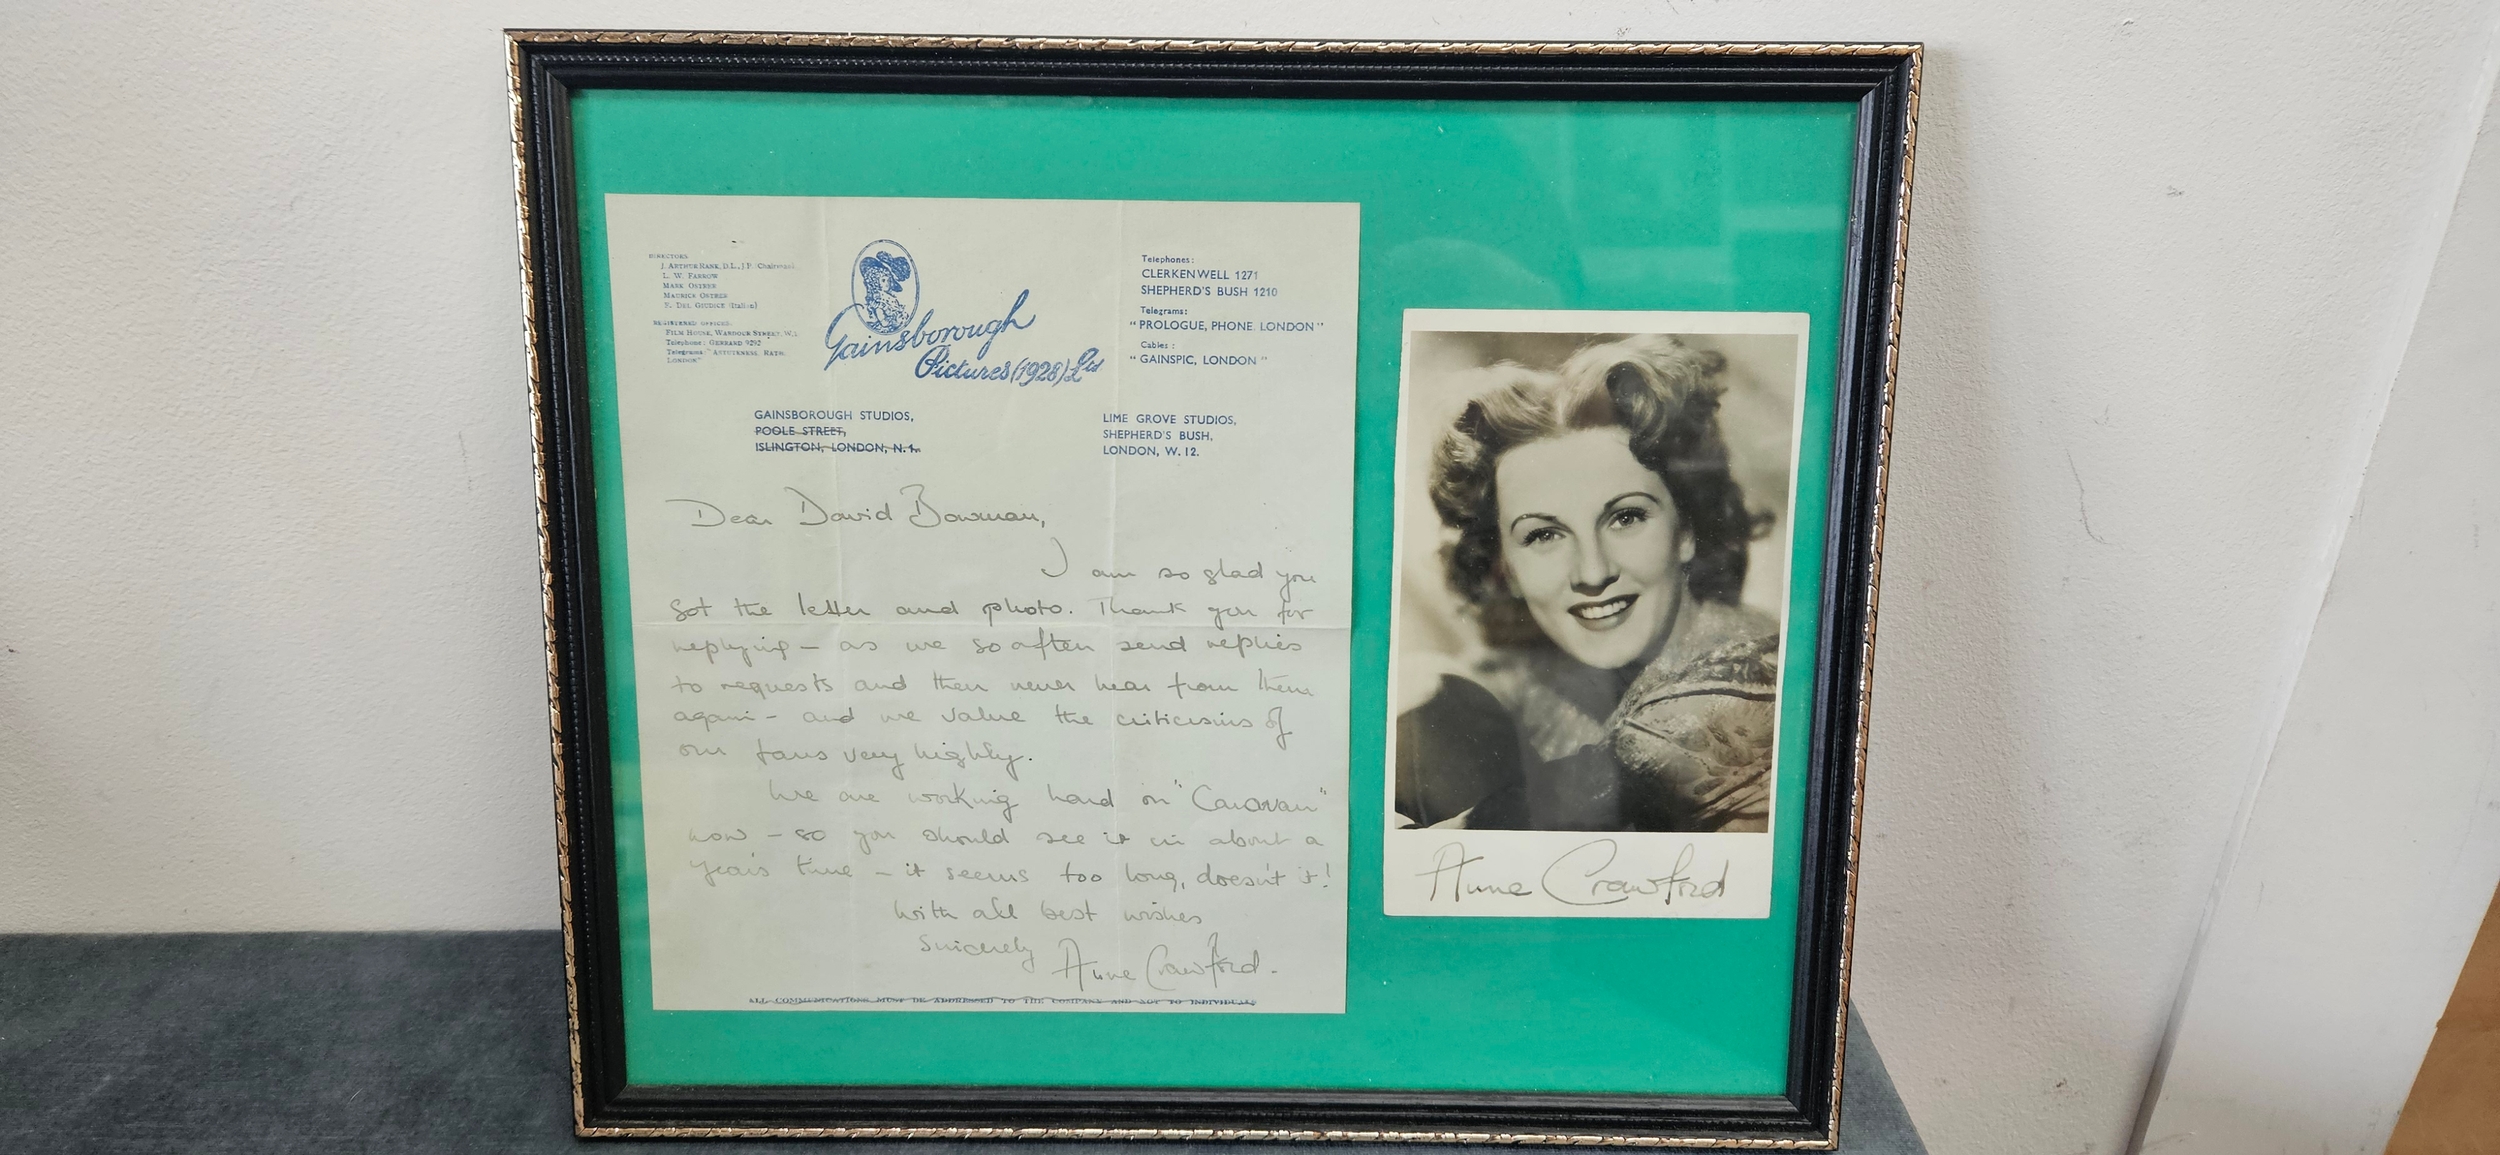 DIRECTORS
J. ARTHUR RANK, D.L., J.P. (Chairman)
L. W. FARROW
MARK OSTRER
MAURICE OSTRER
F. DEL GIUDICE (Italian)
REGISTERED OFFICES:
FILM HOUSE, WARDOUR STREET, W.1.
Telephone: GERRARD 9292
Telegrams: "ASTUTENESS, RATH,
LONDON"
Gainsborough
Pictures (1928) Ltd
Telephones:
CLERKENWELL 1271
SHEPHERD'S BUSH 1210
Telegrams:
"PROLOGUE, PHONE, LONDON"
Cables:
"GAINSPIC, LONDON"
GAINSBOROUGH STUDIOS,
POOLE STREET,
ISLINGTON, LONDON, N.1.
LIME GROVE STUDIOS,
SHEPHERD'S BUSH,
LONDON, W.12.
Dear David Bowman,
I am so glad you
got the letter and photo. Thank you for
replying - as we so often send replies
to requests and then never hear from them
again - and we value the criticisms of
our fans very highly.
We are working hard on "Caravan"
now - so you should see it in about a
year's time - it seems too long, doesn't it!
With all best wishes
Sincerely Anne Crawford.
ALL COMMUNICATIONS MUST BE ADDRESSED TO THE COMPANY AND NOT TO INDIVIDUALS
Anne Crawford